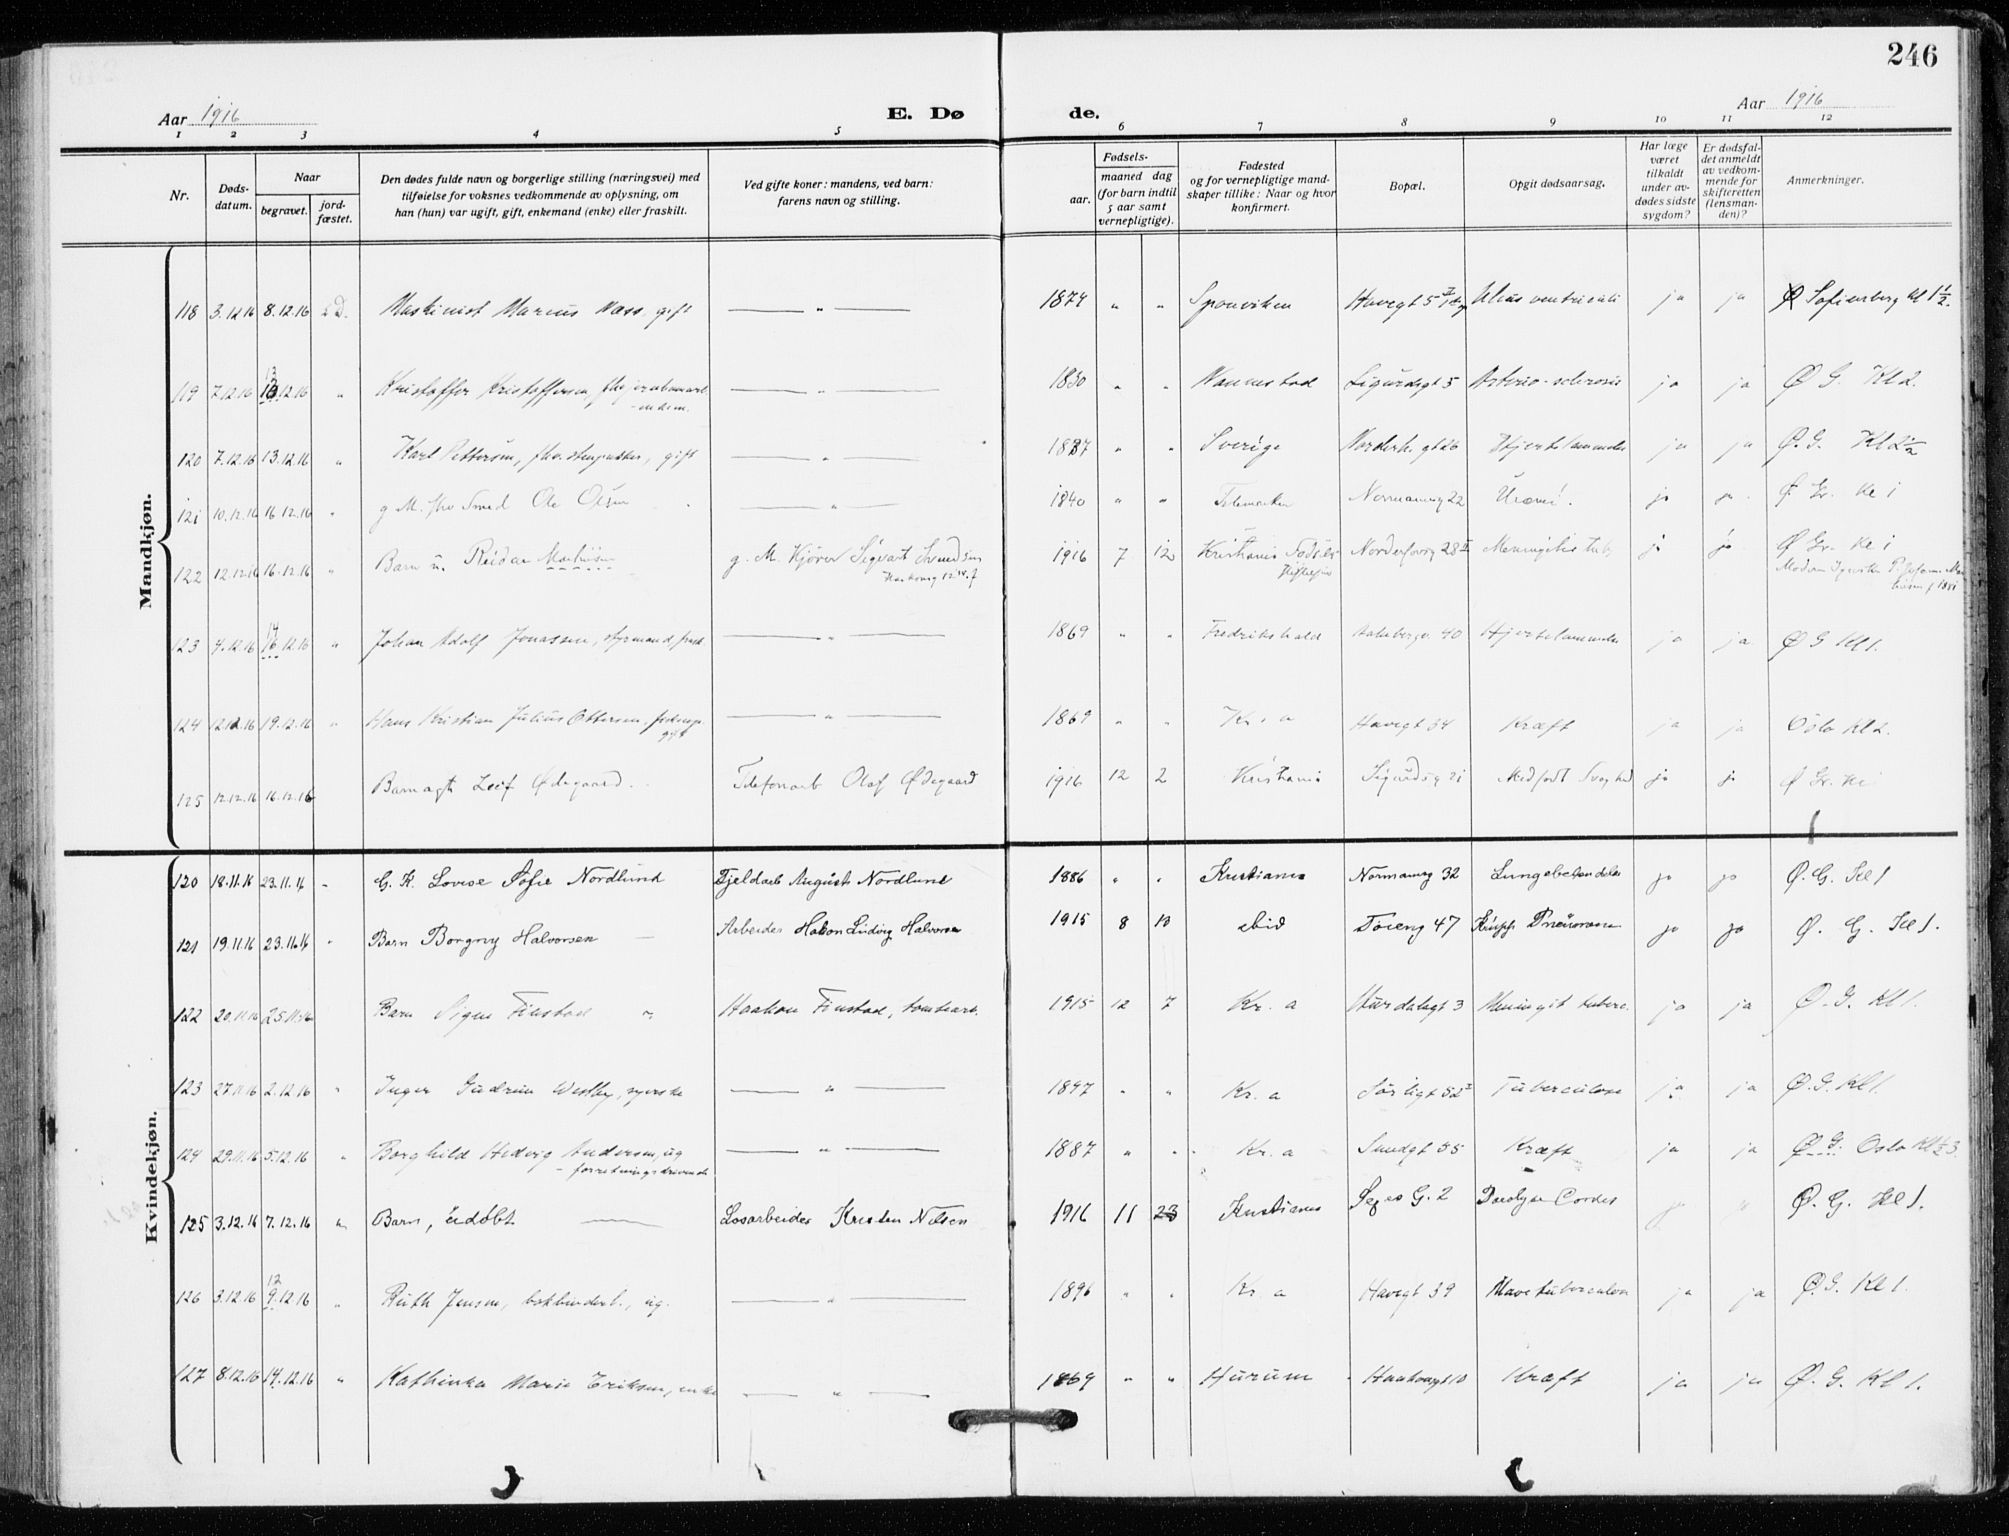 246
Aar 1916 E. Dø de. Aar 1916
1 2 3 4 5 6 7 8 9 10 11 12
Nr.
Døds-
datum.
Naar
begravet.
jord-
fæstet.
Den dødes fulde navn og borgerlige stilling (næringsvei) med
tilføielse for voksnes vedkommende av oplysning, om
han (hun) var ugift, gift, enkemand (enke) eller fraskilt.
Ved gifte koner: mandens, ved barn:
farens navn og stilling.
Fødsels-
aar.
maaned dag
(for barn indtil
5 aar samt
vernepligtige).
Fødested
og for vernepligtige mand-
skaper tillike: Naar og hvor
konfirmert.
Bopæl.
Opgit dødsaarsag.
Har læge
været
tilkaldt
under av-
dødes sidste
sygdom?
Er dødsfal-
det anmeldt
av vedkom-
mende for
skifteretten
(lensman-
den)?
Anmerkninger.
Mandkjøn.
118 3.12.16 8.12.16 Maskinist Marius Næss, gift — " — 1874 " " Sponviken Havegt 5 Ulcus ventriculi ja ja Ø Sofienberg kl 1½.
119 7.12.16 13.12.16 " Kristoffer Kristoffersen, — " — 1830 " " Nannestad Sigurdsgt 5 Arterio-sclerosis ja ja Ø G. Kl 2.
120 7.12.16 13.12.16 " Karl Pettersen, gift — " — 1837 " " Sverige Norderh. gt 26 Hjertelammelse ja ja Ø. G. Kl 2½
121 10.12.16 16.12.16 " g M. fhv Smed Ole Olsen — " — 1840 " " Telemarken Normannsg 22 Uræmi. ja ja Ø Gr. Kl 1
122 12.12.16 16.12.16 " Barn u. Reidar Mathisen g. M. Kjører Sigvart Svendsen 1916 7 12 Kristiania Fødsels Meningitis tub ja ja Ø Gr. Kl 1
123 4.12.16 16.12.16 " Johan Adolf Jonassen, styrmand, — " — 1869 " " Fredrikshald 40 Hjertelammelse ja ja Ø G Kl 1.
124 12.12.16 19.12.16 " Hans Kristian Julius Ottersen, gift — " — 1869 " " Kr. a Havegt 34 Kræft ja ja Oslo Kl 2.
125 12.12.16 16.12.16 Barn agt Leif Ødegaard. Telefonarb Olaf Ødegaard 1916 12 2 Kristiania Sigurdsg 21 Medfødt Svaghed ja ja Ø Gr. Kl 1
Kvindekjøn.
120 18.11.16 23.11.16 " G. K. Lovise Sofie Nordlund Fjeldarb August Nordlund 1886 " " Kristiania Normannsg 32 Lungebetændelse ja ja Ø. G. Kl 1
121 19.11.16 23.11.16 " Barn Borgny Halvorsen — Arbeider Hakon Ludvig Halvorsen 1915 8 13 ibid Tøieng 47 ja ja Ø. G. Kl 1.
122 20.11.16 25.11.16 Barn Signe Finstad " Haakon Finstad, 1915 12 7 Kr. a Hurdalsgt 3 Meningit tuberc. ja ja Ø. G. Kl 1.
123 27.11.16 2.12.16 " Inger Gudrun Westby, syerske — " — 1897 " " Kr. a Sørligt 52 Tuberculose ja ja Ø. G. Kl 1.
124 29.11.16 5.12.16 " Borghild Hedvig Andersen, ug
- forretningsdrivende — " — 1887 " " Kr. a Smedgt 35 Kræft ja ja Ø G. Oslo Kl
125 3.12.16 7.12.16 " Barn, udøbt — Losarbeider Kristen Nilsen 1916 11 23 Kristiania G. 2 Cordis ja " Ø. G. Kl 1.
126 3.12.16 12 9.12.16 " Ruth Jensen, bokbinderl., ug. — " — 1896 " " Kr. a Havegt 39 Mavetuberculose ja ja Ø. G. Kl 1.
127 8.12.16 14.12.16 " Kathinka Marie Eriksen, enke — " — 1869 " " Hurum Haakonsgt 10 Kræft ja ja Ø. G. Kl 1.